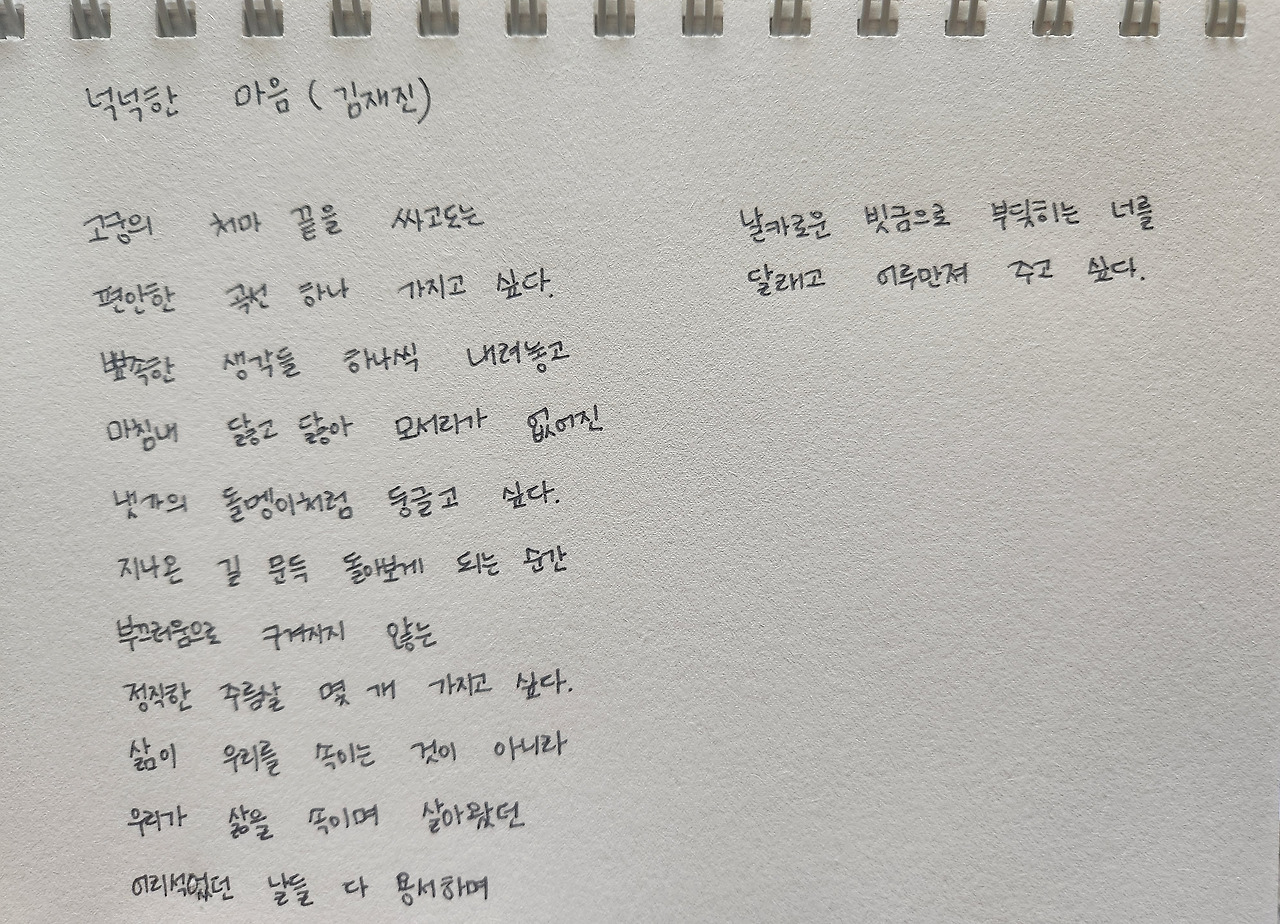 넉넉한 마음 (김재진)
고궁의 처마 끝을 싸고도는
편안한 곡선 하나 가지고 싶다.
뾰족한 생각들 하나씩 내려놓고
마침내 닳고 닳아 모서리가 없어진
냇가의 돌멩이처럼 둥글고 싶다.
지나온 길 문득 돌아보게 되는 순간
부끄러움으로 구겨지지 않는
정직한 주름살 몇 개 가지고 싶다.
삶이 우리를 속이는 것이 아니라
우리가 삶을 속이며 살아왔던
어리석었던 날들 다 용서하며
날카로운 빗금으로 부딪히는 너를
달래고 어루만져 주고 싶다.